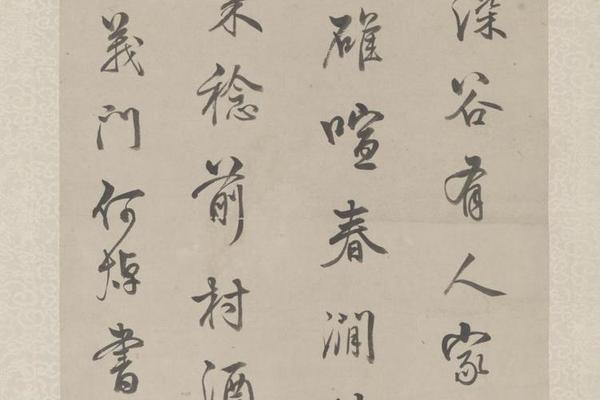 深谷有人家
碓喧春澗
來稔前村酒
義門何焯書